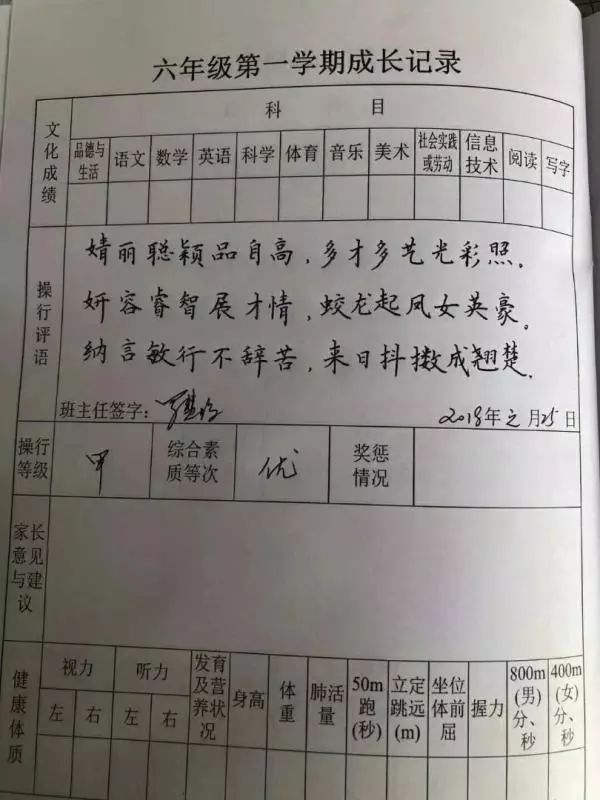 六年级第一学期成长记录
文化成绩
科目
品德与生活 语文 数学 英语 科学 体育 音乐 美术 社会实践或劳动 信息技术 阅读 写字
操行评语
婧丽聪颖品自高，多才多艺光彩照。
妍容睿智展才情，蛟龙起凤女英豪。
纳言敏行不辞苦，来日抖擞成翘楚。
班主任签字： 2018年元月25日
操行等级 甲 综合素质等次 优 奖惩情况
家长意见与建议
健康体质
视力 听力 发育及营养状况 身高 体重 肺活量 50m跑(秒) 立定跳远(m) 坐位体前屈 握力 800m(男)分、秒 400m(女)分、秒
左 右 左 右